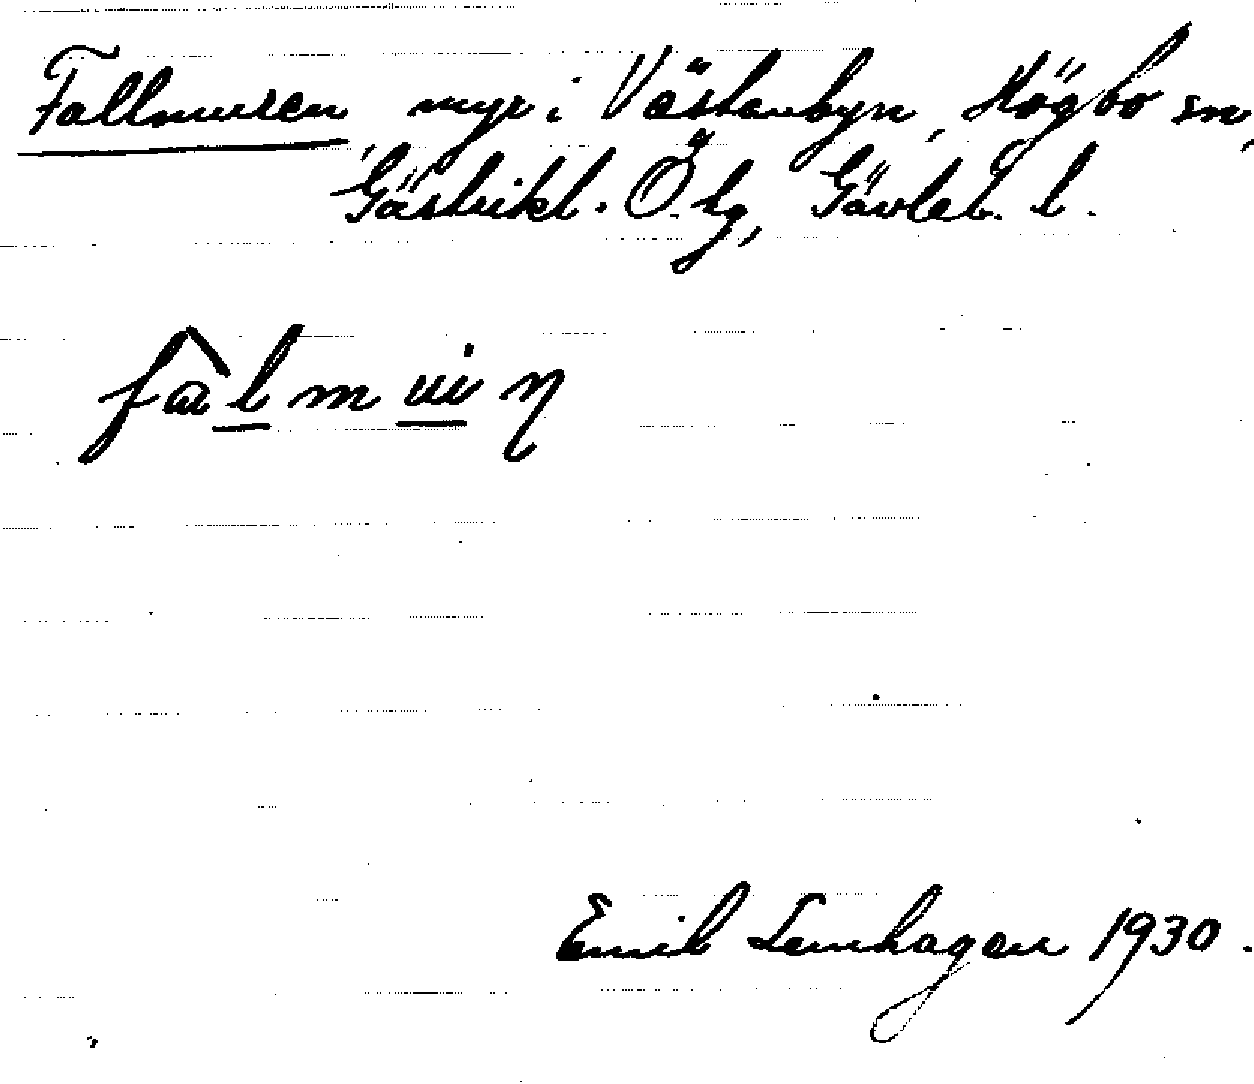 Fallmuren, myr i Västanbyn, Högbo sn,
Gästrikl. Ö. tg, Gävleb. l.
Emil Lemhagen 1930.